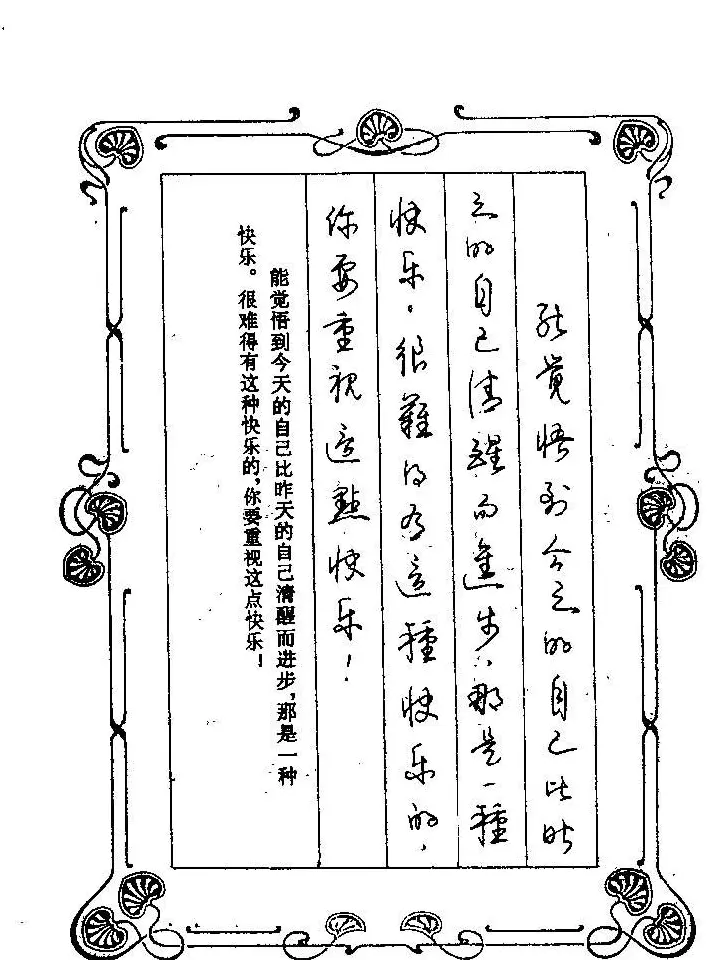 能覺悟到今天的自己比昨
天的自己清醒而進步，那是一種
快乐。很難得有這種快乐的，
你要重視這點快乐！
能觉悟到今天的自己比昨天的自己清醒而进步，那是一种
快乐。很难得有这种快乐的，你要重视这点快乐！